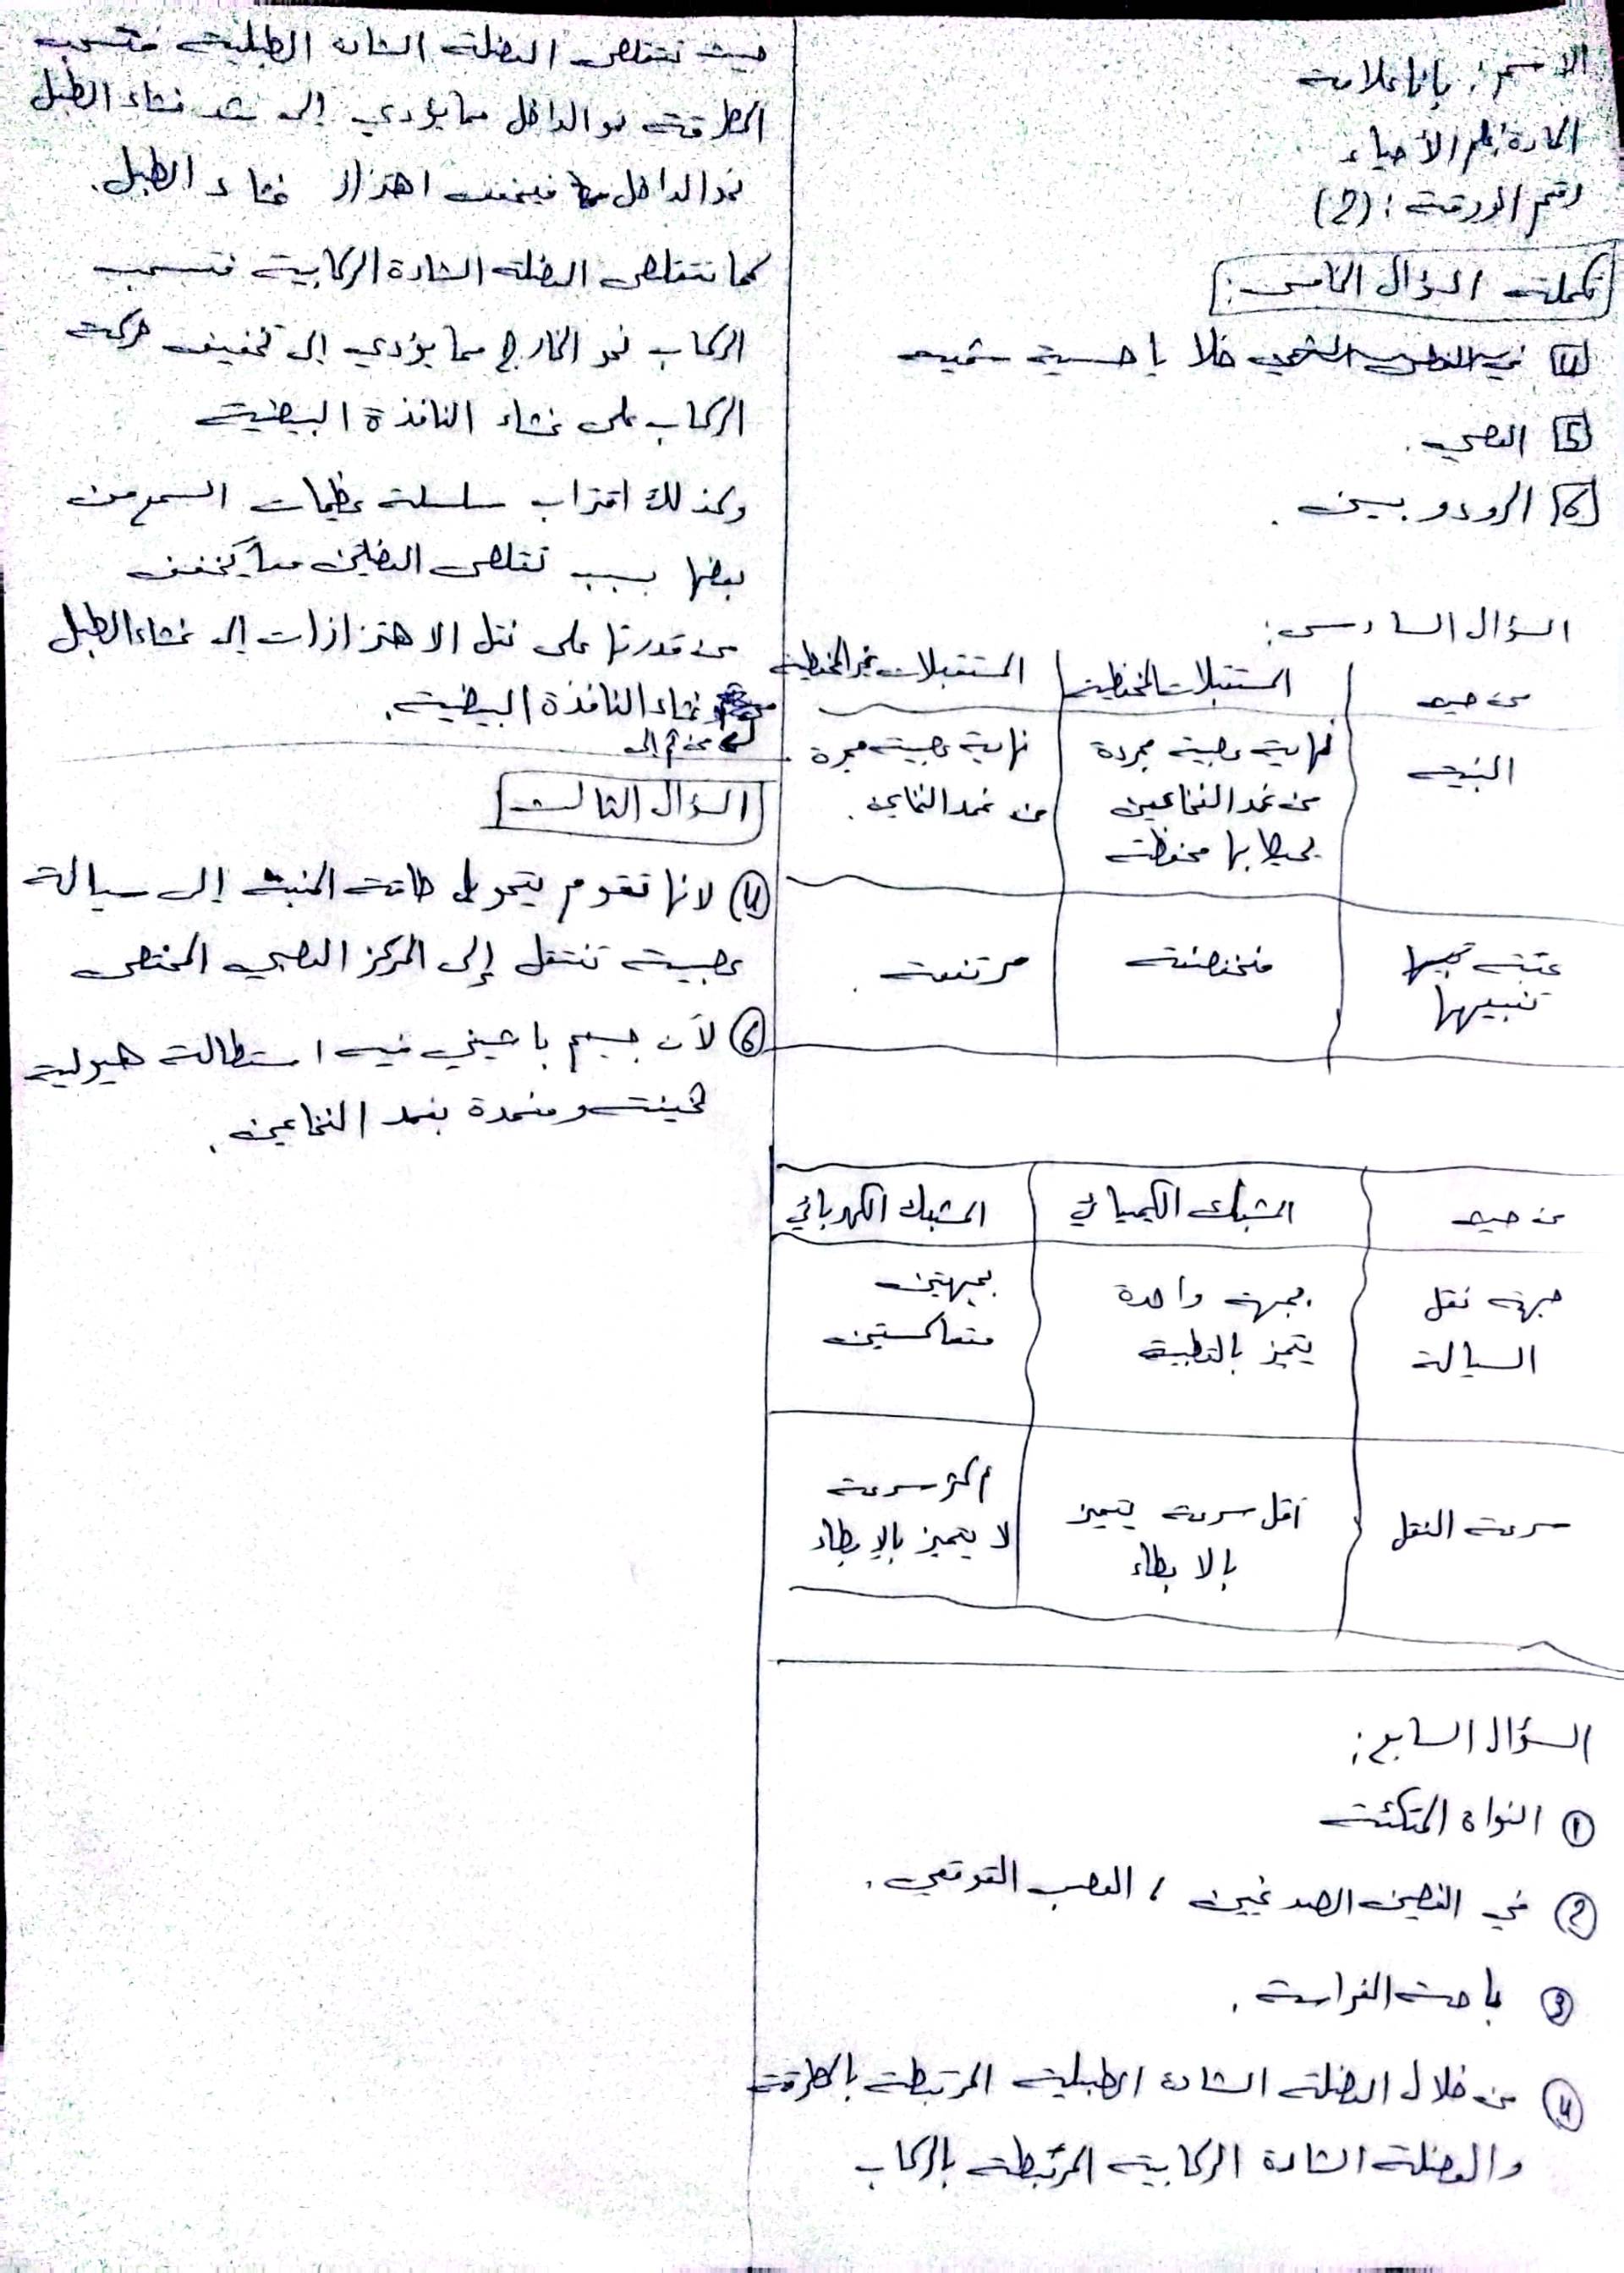 الاسم: بانا علامة
المادة: علم الأحياء
رقم الورقة: (2)
تكملة السؤال الخامس:
4 خلايا حسية شمية
5 العصي.
6 الرودوبسين.
السؤال السادس:
من حيث | المستقبلات المحفظية | المستقبلات غير المحفظية
البنية | نهاية عصبية مجردة | نهاية عصبية مجردة
من غمد النخاعين | من غمد النخاعين.
يحيط بها محفظة
عتبة تنبيهها | منخفضة | مرتفعة.
من حيث | المشبك الكيميائي | المشبك الكهربائي
جهة نقل | بجهة واحدة | بجهتين
السيالة | يتميز بالقطبية | متعاكستين
سرعة النقل | أقل سرعة يتميز | أكثر سرعة
بالابطاء | لا يتميز بالإبطاء
السؤال السابع:
1 النواة المتكئة
2 في الفصين الصدغيين، العصب القوقعي.
3 باحة الفراسة.
4 من خلال العضلة الشادة الطبلية المرتبطة بالمطرقة
والعضلة الشادة الركابية المرتبطة بالركاب
حيث تتقلص العضلة الشادة الطبلية فتسحب
المطرقة نحو الداخل مما يؤدي إلى شد غشاء الطبل
نحو الداخل فيخفف اهتزاز غشاء الطبل.
كما تتقلص العضلة الشادة الركابية فتسحب
الركاب نحو الخارج مما يؤدي إلى تخفيف حركة
الركاب على غشاء النافذة البيضية
وكذلك اقتراب سلسلة عظيمات السمع من
بعضها بسبب تقلص العضلتين مما يخفف
من قدرتها على نقل الاهتزازات إلى غشاء الطبل
غشاء النافذة البيضية.
ومن ثم إلى
السؤال الثالث
4 لانها تقوم بتحويل طاقة المنبه إلى سيالة
عصبية تنتقل إلى المركز العصبي المختص
6 لأن جسيم باشيني فيه استطالة هيولية
ثخينة ومغمدة بغمد النخاعين.